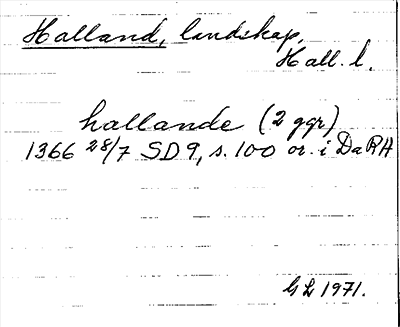 Halland, landskap,
Hall. l.
hallande (2 ggr)
1366 28/7 SD 9, s. 100 or. i DaRA
GL 1971.